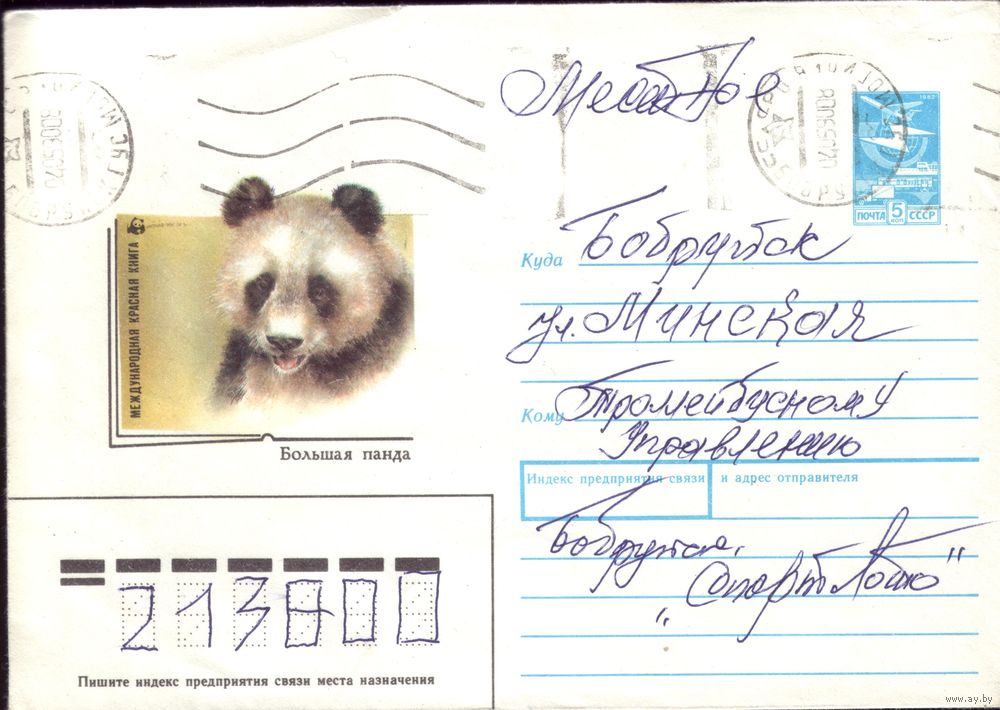 Местное
1982
ПОЧТА 5 КОП СССР
МЕЖДУНАРОДНАЯ КРАСНАЯ КНИГА
Большая панда
Куда Бобруйск
ул. Минская
Кому Тролейбусному
Управлению
Индекс предприятия связи и адрес отправителя
Бобруйск,
"Спортлото"
213800
Пишите индекс предприятия связи места назначения
www.ay.by